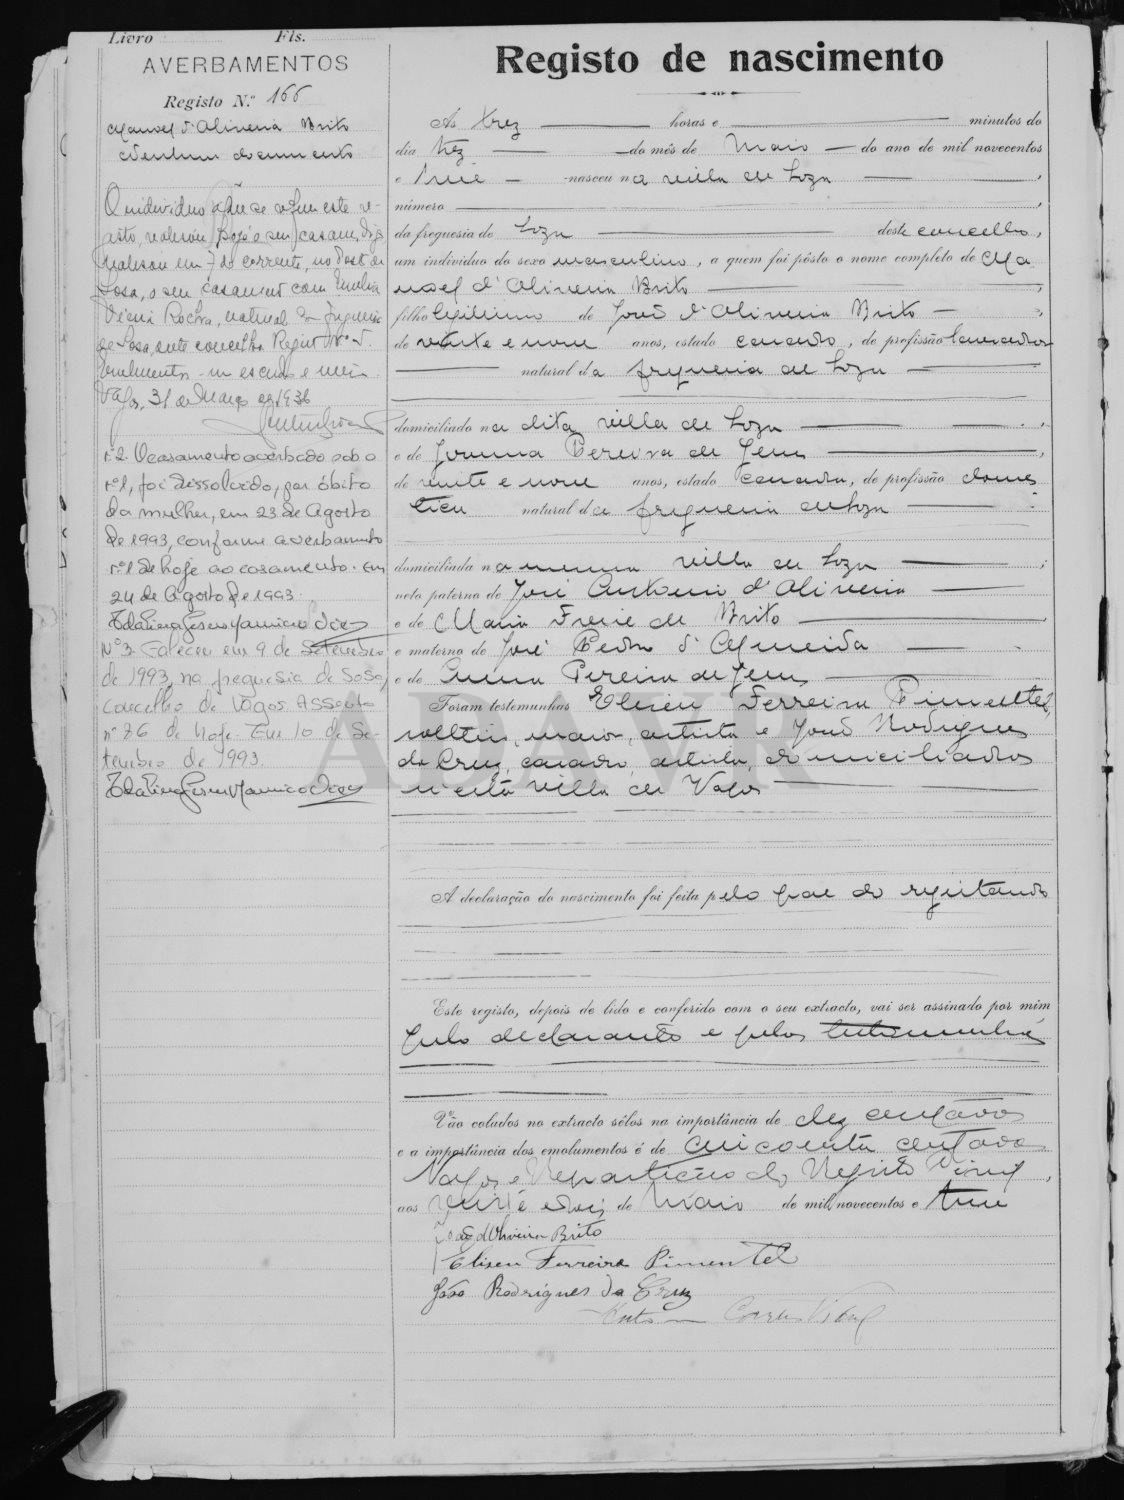 Livro Fls.
AVERBAMENTOS
Registo N.º 166
Manoel d'Oliveira Brito
Nenhum documento
O individuo a que se refere este re-
gisto, realisou
realisou em 7 do corrente, no Posto de
Sosa, o seu casamento com Emilia
Rocha, natural da freguesia
de Sosa, deste concelho Registo N.º
Emolumentos um escudo e
Vagos, 31 de Março de 1936
nº 2. O casamento averbado sob o
nº 1, foi dissolvido, por óbito
da mulher, em 23 de Agosto
de 1993, conforme averbamento
nº 1 de hoje ao casamento. Em
24 de Agosto de 1993.
Nº 3 Faleceu em 9 de Setembro
de 1993, na freguesia de Sosa,
Concelho de Vagos. Assento
nº 86 de hoje. Em 10 de Se-
tembro de 1993.
Registo de nascimento
Às trez horas e minutos do
dia trez do mês de Maio do ano de mil novecentos
e treze nasceu na villa de Soza,
número
da freguesia de Soza deste concelho,
um individuo do sexo masculino, a quem foi pôsto o nome completo de Ma
noel d'Oliveira Brito
filho legitimo de José d'Oliveira Brito
de vinte e nove anos, estado casado, de profissão lavrador
natural da freguesia de Soza
domiciliado na dita villa de Soza
e de Joanna Pereira de Jesus
de vinte e nove anos, estado casada, de profissão domes
tica natural da freguesia de Soza
domiciliada na mesma villa de Soza
neto paterno de José Antonio d'Oliveira
e de Maria Freire de Brito
e materno de José Pedro d'Almeida
e de Anna Pereira de Jesus
Foram testemunhas Eliseu Ferreira Pimentel,
solteiro, maior, artista e João Rodrigues
da Cruz, casado, artista, domiciliados
n'esta villa de Vagos
A declaração do nascimento foi feita pelo pae do registando
Este registo, depois de lido e conferido com o seu extracto, vai ser assinado por mim
pelo declarante e pelas testemunhas
Vão colados no extracto sêlos na importância de dez centavos
e a importância dos emolumentos é de cincoenta centavos
Vagos e Repartição do Registo Civil,
aos vinte e dois de Maio de mil novecentos e treze
José d'Oliveira Brito
Eliseu Ferreira Pimentel
João Rodrigues da Cruz
Vidal
ADAVR